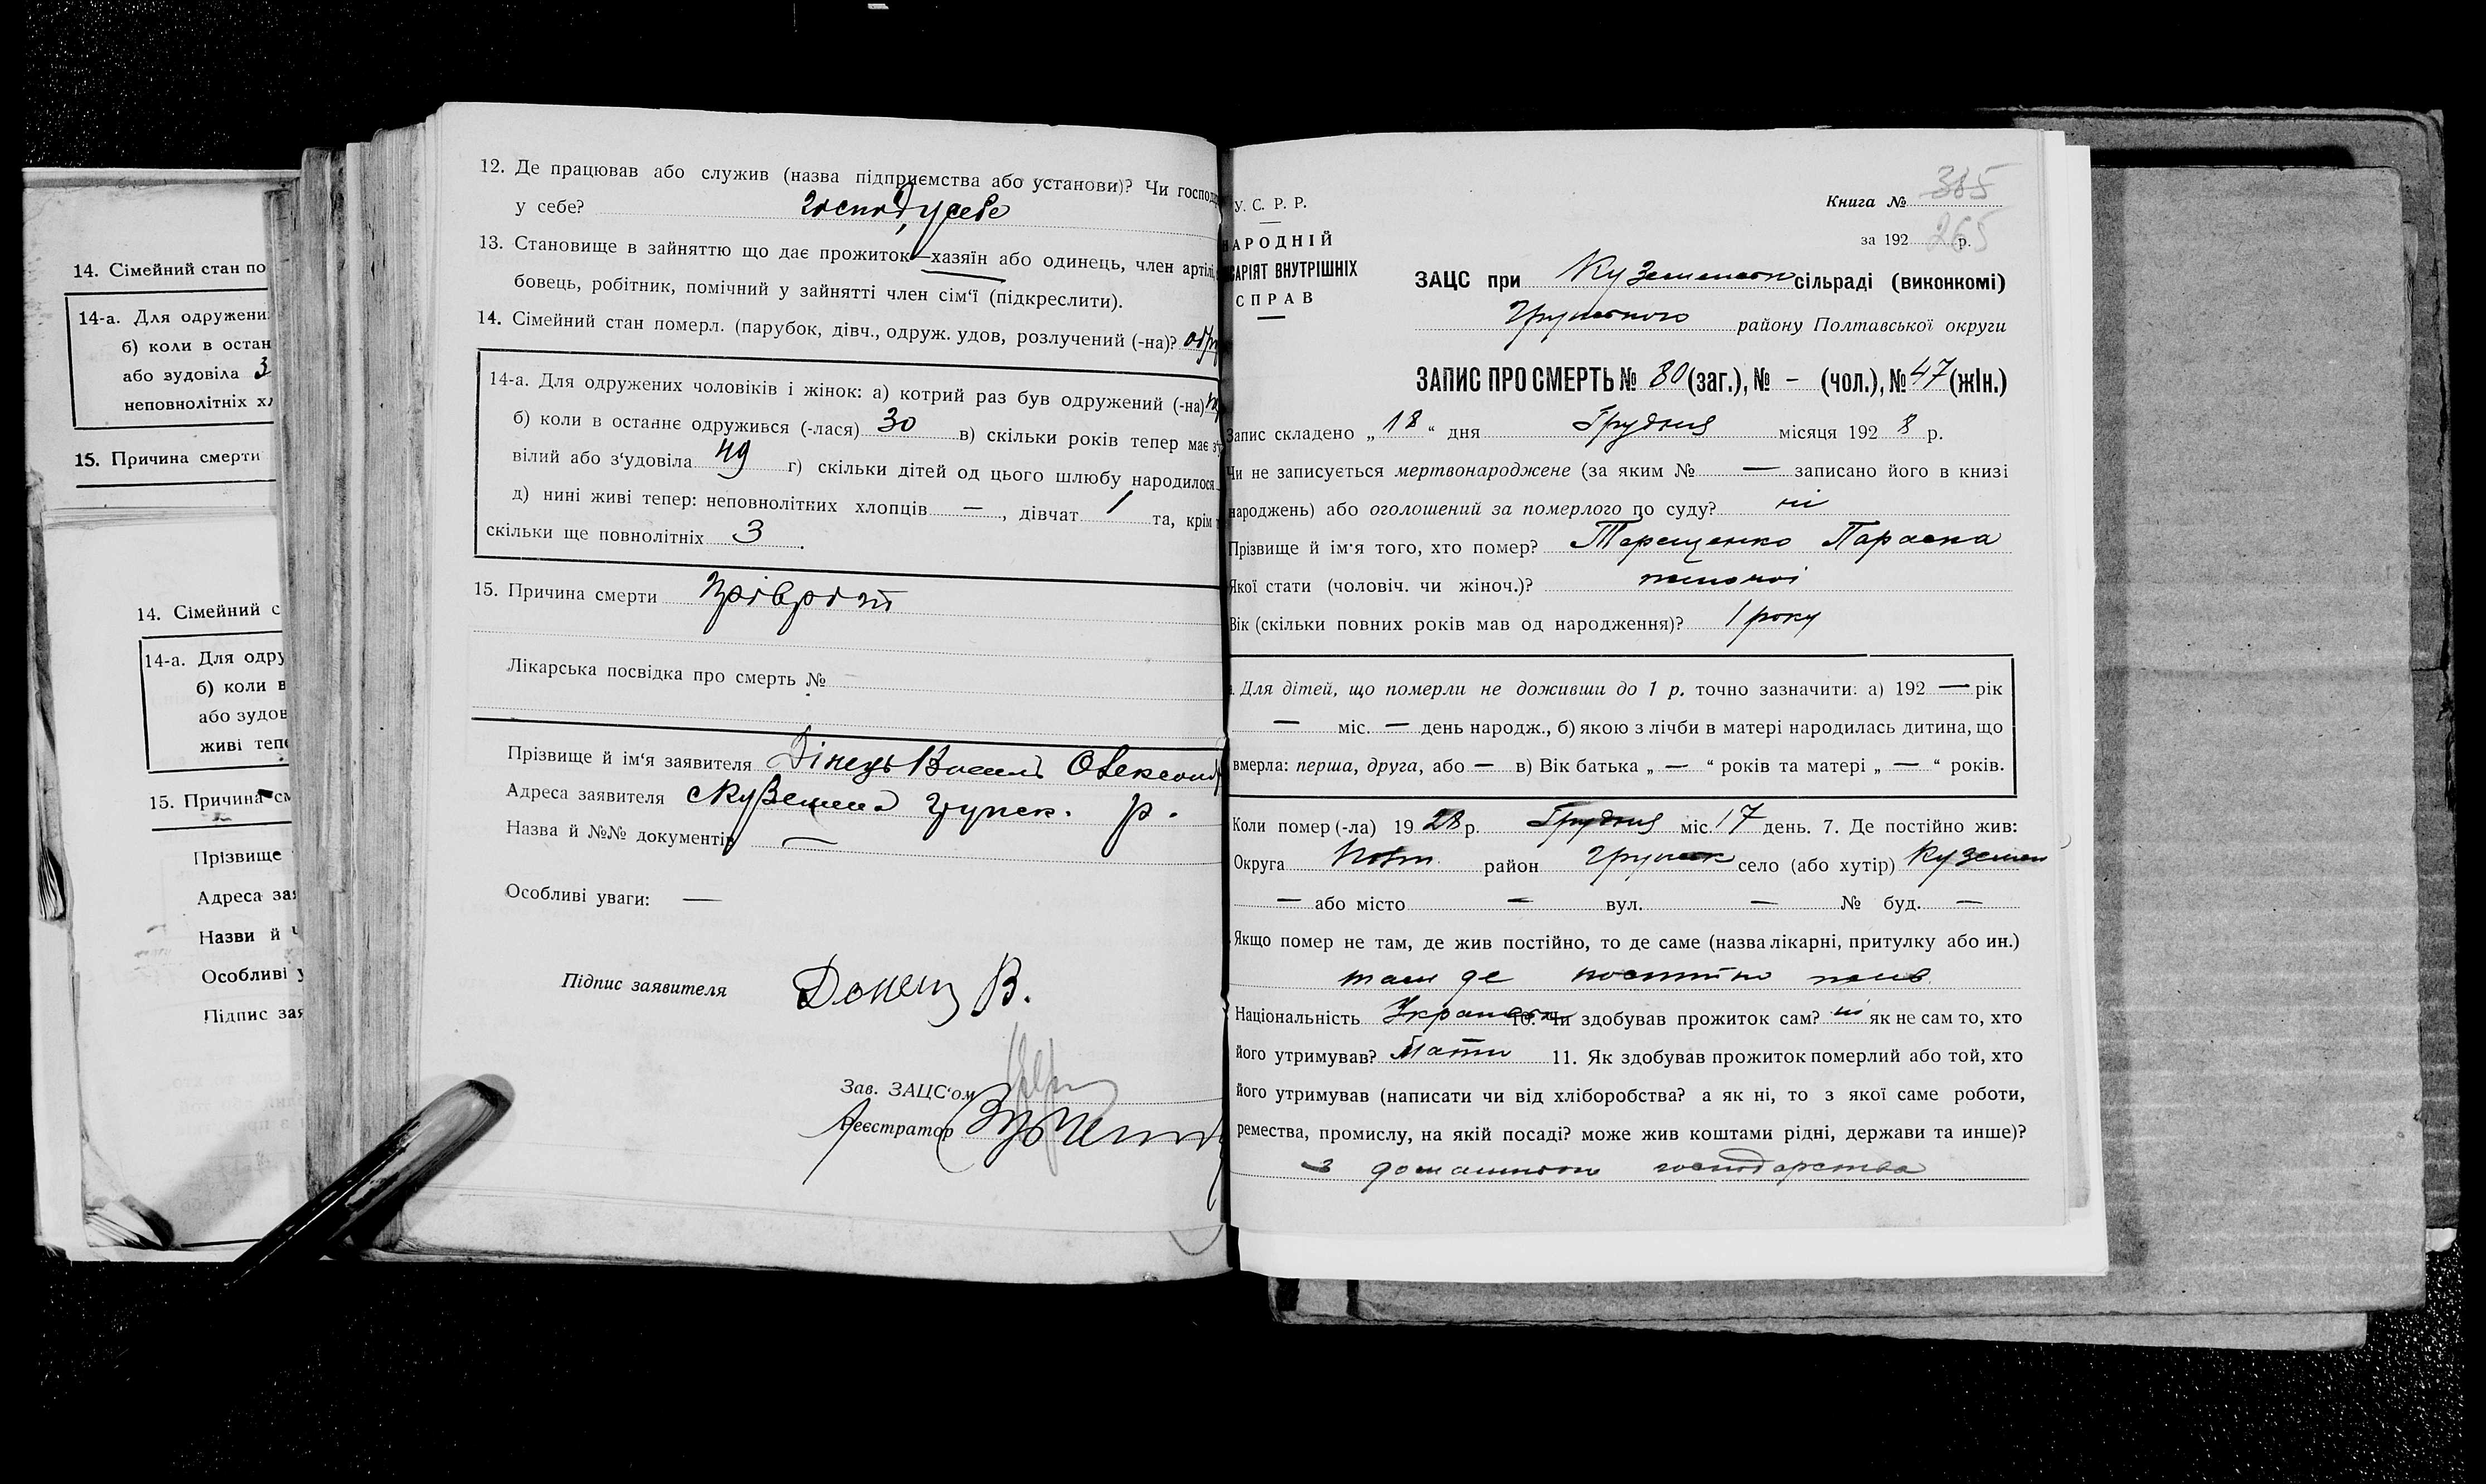 14. Сімейний стан по
14-а. Для одружени
б) коли в остан
або зудовіла 3
неповнолітніх хл
15. Причина смерти
14. Сімейний с
14-а. Для одру
б) коли в
або зудов
живі тепе
15. Причина см
Прізвище
Адреса зая
Назви й ч
Особливі у
Підпис зая
12. Де працював або служив (назва підприємства або установи)? Чи господар
у себе? господ. у себе
13. Становище в зайняттю що дає прожиток—хазяїн або одинець, член артілі,
бовець, робітник, помічний у зайнятті член сім'ї (підкреслити).
14. Сімейний стан померл. (парубок, дівч., одруж. удов, розлучений (-на)? одру
14-а. Для одружених чоловіків і жінок: а) котрий раз був одружений (-на)
б) коли в останнє одружився (-лася) 30 в) скільки років тепер має з'у
вілий або з'удовіла 49 г) скільки дітей од цього шлюбу народилося
д) нині живі тепер: неповнолітних хлопців — , дівчат 1 та, крім
скільки ще повнолітніх 3 .
15. Причина смерти
Лікарська посвідка про смерть №
Прізвище й ім'я заявителя Дінець Василь Олександ
Адреса заявителя с Куземена грунск. р.
Назва й №№ документів —
Особливі уваги: —
Підпис заявителя Донець В.
Зав. ЗАЦС'ом
Реєстратор
385
Книга №
265
за 192 р.
У. С. Р. Р.
НАРОДНІЙ
САРІЯТ ВНУТРІШНІХ
СПРАВ
ЗАЦС при Куземенськ сільраді (виконкомі)
Грунського району Полтавської округи
ЗАПИС ПРО СМЕРТЬ № 80 (заг.), № - (чол.), № 47 (жін.)
Запис складено „ 18 “ дня Грудня місяця 192 8 р.
Чи не записується мертвонароджене (за яким № — записано його в книзі
народжень) або оголошений за померлого по суду? ні
Прізвище й ім'я того, хто помер? Терещенко Параска
Якої стати (чоловіч. чи жіноч.)? жіночої
Вік (скільки повних років мав од народження)? 1 року
Для дітей, що померли не доживши до 1 р. точно зазначити: а) 192 — рік
— міс. — день народж., б) якою з лічби в матері народилась дитина, що
вмерла: перша, друга, або — в) Вік батька „ — “ років та матері „ — “ років.
Коли помер (-ла) 19 28 р. Грудня міс 17 день. 7. Де постійно жив:
Округа Полт. район Грунськ село (або хутір) Куземен
— або місто — вул. — № буд. —
Якщо помер не там, де жив постійно, то де саме (назва лікарні, притулку або ин.)
там де постійно жив
Національність Українськ 10. Чи здобував прожиток сам? ні як не сам то, хто
його утримував? Мати 11. Як здобував прожиток померлий або той, хто
його утримував (написати чи від хліборобства? а як ні, то з якої саме роботи,
ремества, промислу, на якій посаді? може жив коштами рідні, держави та инше)?
з домашнього господарства